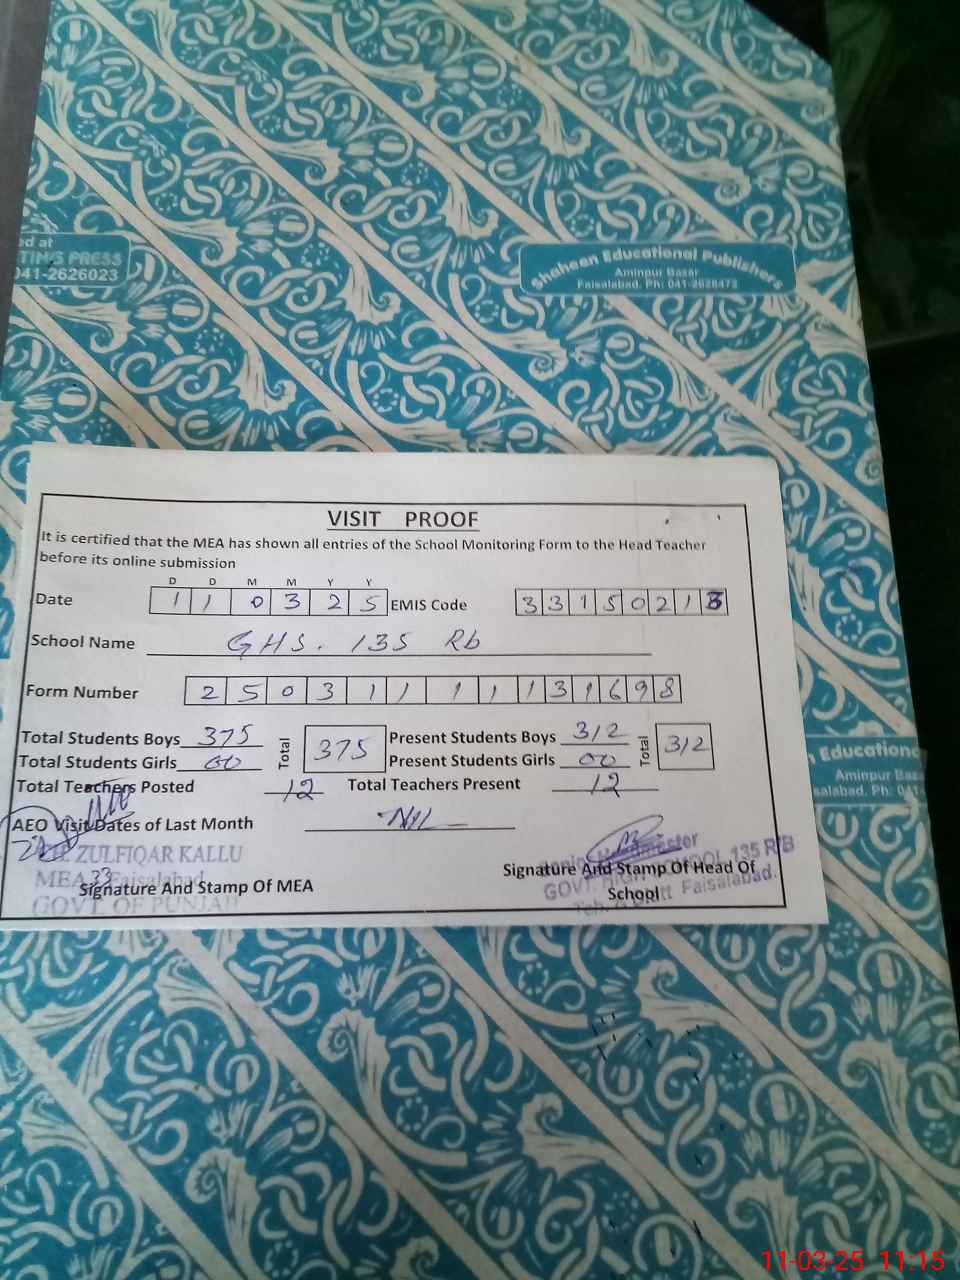 ed at
TING PRESS
041-2626023
Shaheen Educational Publishers
Aminpur Bazar
Faisalabad. Ph: 041-2628472
VISIT PROOF
It is certified that the MEA has shown all entries of the School Monitoring Form to the Head Teacher
before its online submission
D D M M Y Y
Date 1 1 0 3 2 5 EMIS Code 3 3 1 5 0 2 1 3
School Name GHS. 135 Rb
Form Number 2 5 0 3 1 1 1 1 1 3 1 6 9 8
Total Students Boys 375 Total 375 Present Students Boys 312 Total 312
Total Students Girls 00 Present Students Girls 00
Total Teachers Posted 12 Total Teachers Present 12
AEO Visit Dates of Last Month Nil
ZULFIQAR KALLU
MEA 33 Faisalabad
GOVT. OF PUNJAB
Signature And Stamp Of MEA
Senior Headmaster
GOVT. HIGH SCHOOL 135 R/B
Faisalabad.
Signature And Stamp Of Head Of
School
Educationa
Aminpur Baza
salabad. Ph: 041-
11-03-25 11:15